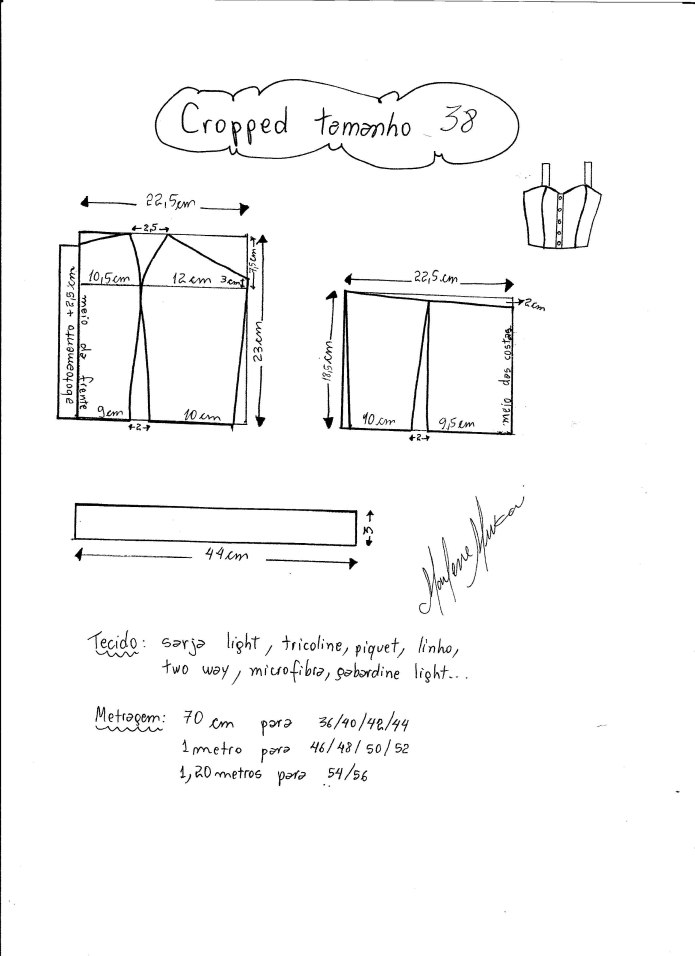 Cropped tamanho 38
22,5cm
2,5
7,5cm
10,5cm
12cm
3cm
abotoamento +2,5cm
meio da frente
23cm
9cm
10cm
2
22,5cm
2cm
18,5cm
meio das costas
10cm
9,5cm
2
3
44cm
Marlene Mukai
Tecido: sarja light, tricoline, piquet, linho,
two way, microfibra, gabardine light...
Metragem: 70 cm para 36/40/42/44
1 metro para 46/48/50/52
1,20 metros para 54/56